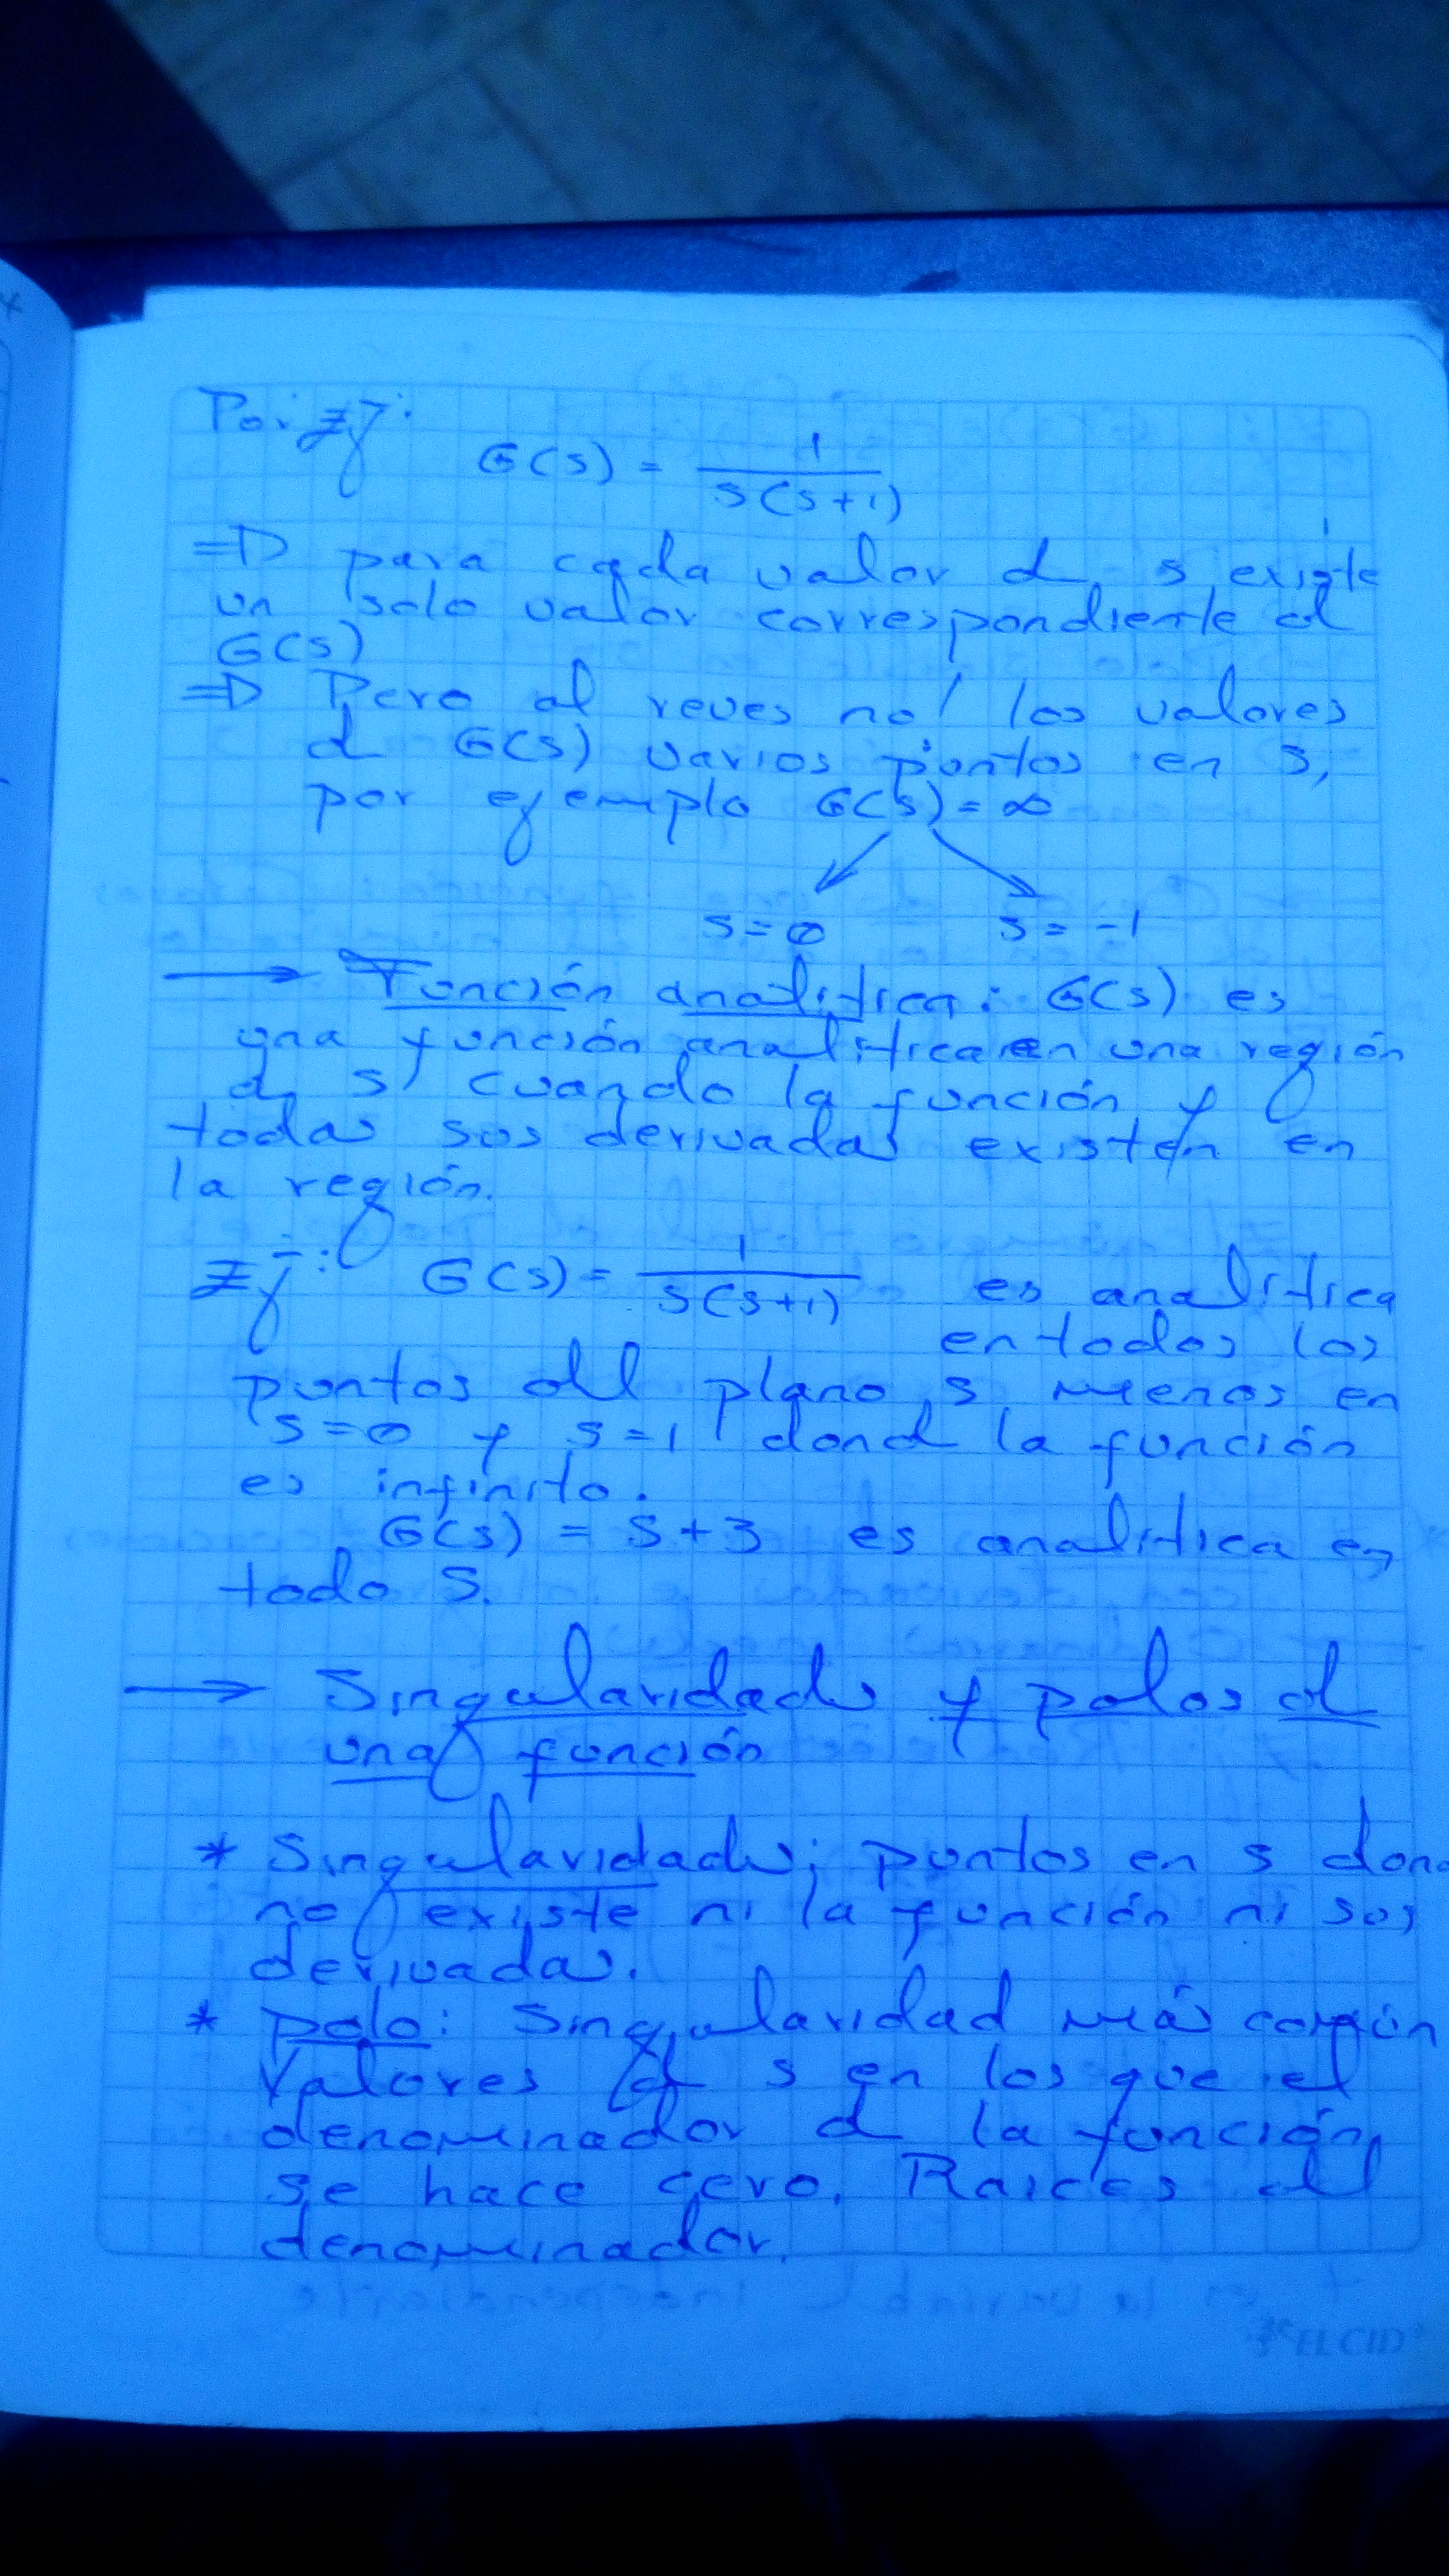 Por Ej:
G(s) = 1 / s(s+1)
=D para cada valor d s existe
un solo valor correspondiente d
G(s)
=D Pero al reves no! los valores
d G(s) varios puntos en s,
por ejemplo G(s) = ∞
s=0 s=-1
→ Función analítica: G(s) es
una función analítica en una región
d s, cuando la función y
todas sus derivadas existen en
la región.
Ej: G(s) = 1 / s(s+1) es analítica
en todos los
puntos dl plano s menos en
s=0 y s=1 dond la función
es infinito.
G(s) = s+3 es analítica en
todo s.
→ Singularidads y polos d
una función
* Singularidads; puntos en s dond
no existe ni la función ni sus
derivadas.
* polo: Singularidad más común
Valores d s en los que el
denominador d la función
se hace cero. Raices dl
denominador.
ELCID